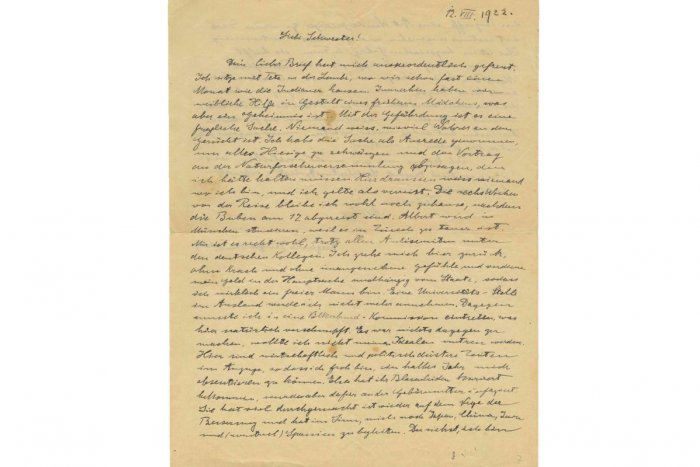 12. VIII. 1922.
Liebe Schwester!
Dein lieber Brief hat mich ausserordentlich gefreut.
Ich sitze mit Tete in der Laube, wo wir schon fast einen
Monat wie die Indianer hausen. Immerhin haben wir
weibliche Hilfe in Gestalt eines früheren Mädchens, was
aber ein Geheimnis ist. Mit der Gefährdung ist es eine
Sache. Niemand weiss, wieviel Wahres an dem
Gerücht ist. Ich habe die Sache als Ausrede genommen,
um alles Hiesige zu schwänzen und den Vortrag
an der Naturforscherversammlung abzusagen, den
ich hätte halten müssen. Hier draussen weiss niemand
wo ich bin, und ich gelte als verreist. Die sechs Wochen
vor der Reise bleibe ich wohl noch zuhause, nachdem
die Buben am 12 abgereist sind. Albert wird in
München studieren, weil es in Zürich zu teuer ist.
Mir ist es recht wohl, trotz allen Antisemiten unter
den deutschen Kollegen. Ich ziehe mich hier zurück,
ohne Krach und ohne unangenehme Gefühle und verdiene
mein Geld in der Hauptsache unabhängig vom Staate, sodass
ich wirklich ein freier Mann bin. Eine Universitäts-Stelle
im Ausland werde ich nicht mehr annehmen. Dagegen
musste ich in eine Völkerbund-Kommission eintreten, was
hier natürlich verschnupft. Es war nichts dagegen zu
machen, wollte ich nicht meinen Idealen untreu werden.
Hier sind wirtschaftlich und politisch düstere Zeiten
im Anzuge, sodass ich froh bin, ein halbes Jahr mich
absentieren zu können. Elsa hat ihr Blasenleiden
bekommen,
Sie hat viel durchgemacht ist wieder auf dem Wege der
Besserung und hat im Sinn, mich nach Japan, China, Java
und (eventuel) Spanien zu begleiten. Du siehst, ich bin